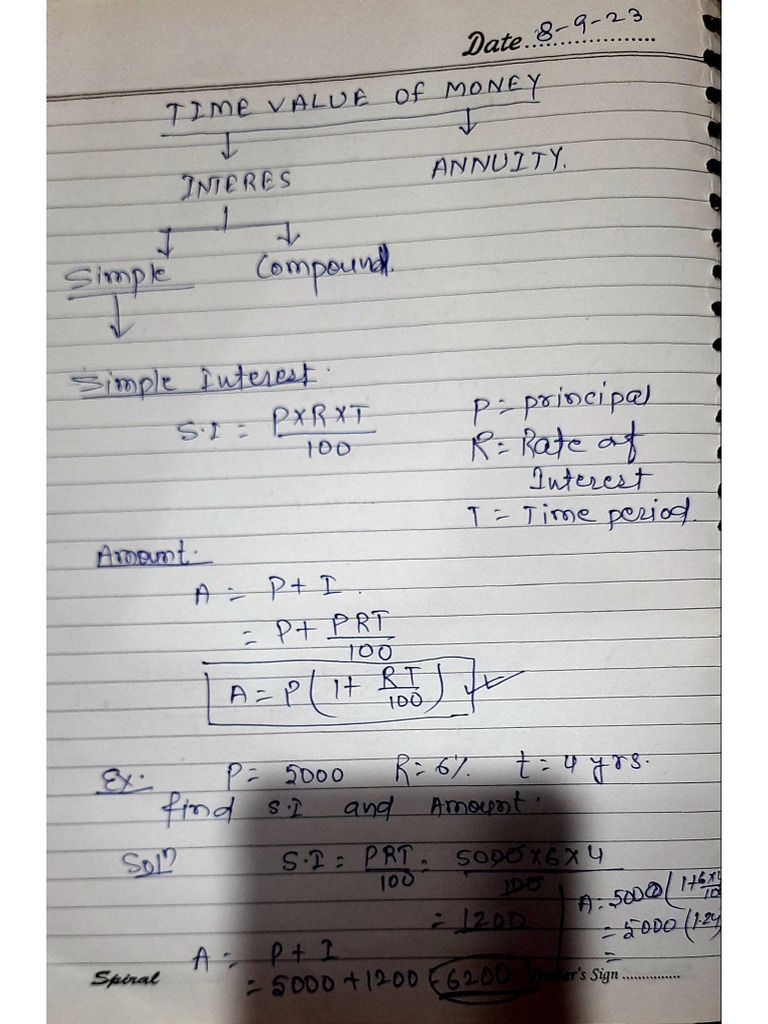 Date 8-9-23
TIME VALUE OF MONEY
INTERES ANNUITY.
Simple Compound.
Simple Interest.
S.I = PXRXT/100
P = principal
R = Rate of
Interest
T = Time period.
Amount.
A = P + I.
= P + PRT/100
A = P(1 + RT/100)
Ex. P = 5000 R = 6% t = 4 yrs.
find S.I and Amount.
Solⁿ S.I = PRT/100 = 5000×6×4/100
= 1200
A = P + I
= 5000 + 1200 = 6200
A = 5000(1+6×
= 5000(1.24
=
Spiral
's Sign ...............